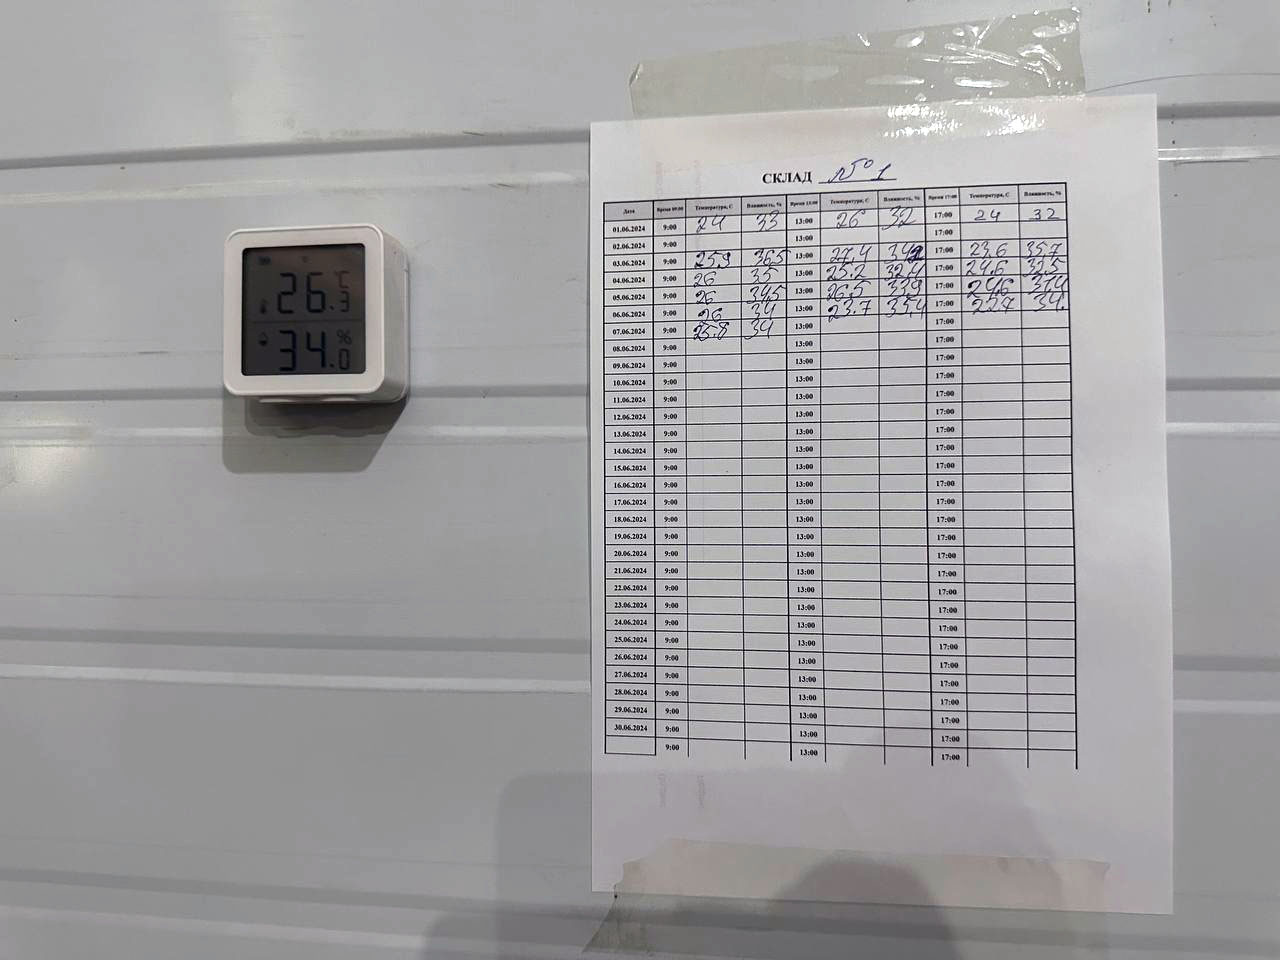 26.3 °C
34.0 %
СКЛАД №1
Дата Время 09:00 Температура, С Влажность, % Время 13:00 Температура, С Влажность, % Время 17:00 Температура, С Влажность, %
01.06.2024 9:00 24 33 13:00 26 32 17:00 24 32
02.06.2024 9:00 13:00 17:00
03.06.2024 9:00 25,9 36,5 13:00 27,4 17:00 23,6 35,7
04.06.2024 9:00 26 35 13:00 25.2 32,4 17:00 24.6
05.06.2024 9:00 26 34,5 13:00 26,5 33,9 17:00 24,6
06.06.2024 9:00 26 34 13:00 23.7 17:00 22,7
07.06.2024 9:00 25.8 34 13:00 17:00
08.06.2024 9:00 13:00 17:00
09.06.2024 9:00 13:00 17:00
10.06.2024 9:00 13:00 17:00
11.06.2024 9:00 13:00 17:00
12.06.2024 9:00 13:00 17:00
13.06.2024 9:00 13:00 17:00
14.06.2024 9:00 13:00 17:00
15.06.2024 9:00 13:00 17:00
16.06.2024 9:00 13:00 17:00
17.06.2024 9:00 13:00 17:00
18.06.2024 9:00 13:00 17:00
19.06.2024 9:00 13:00 17:00
20.06.2024 9:00 13:00 17:00
21.06.2024 9:00 13:00 17:00
22.06.2024 9:00 13:00 17:00
23.06.2024 9:00 13:00 17:00
24.06.2024 9:00 13:00 17:00
25.06.2024 9:00 13:00 17:00
26.06.2024 9:00 13:00 17:00
27.06.2024 9:00 13:00 17:00
28.06.2024 9:00 13:00 17:00
29.06.2024 9:00 13:00 17:00
30.06.2024 9:00 13:00 17:00
9:00 13:00 17:00